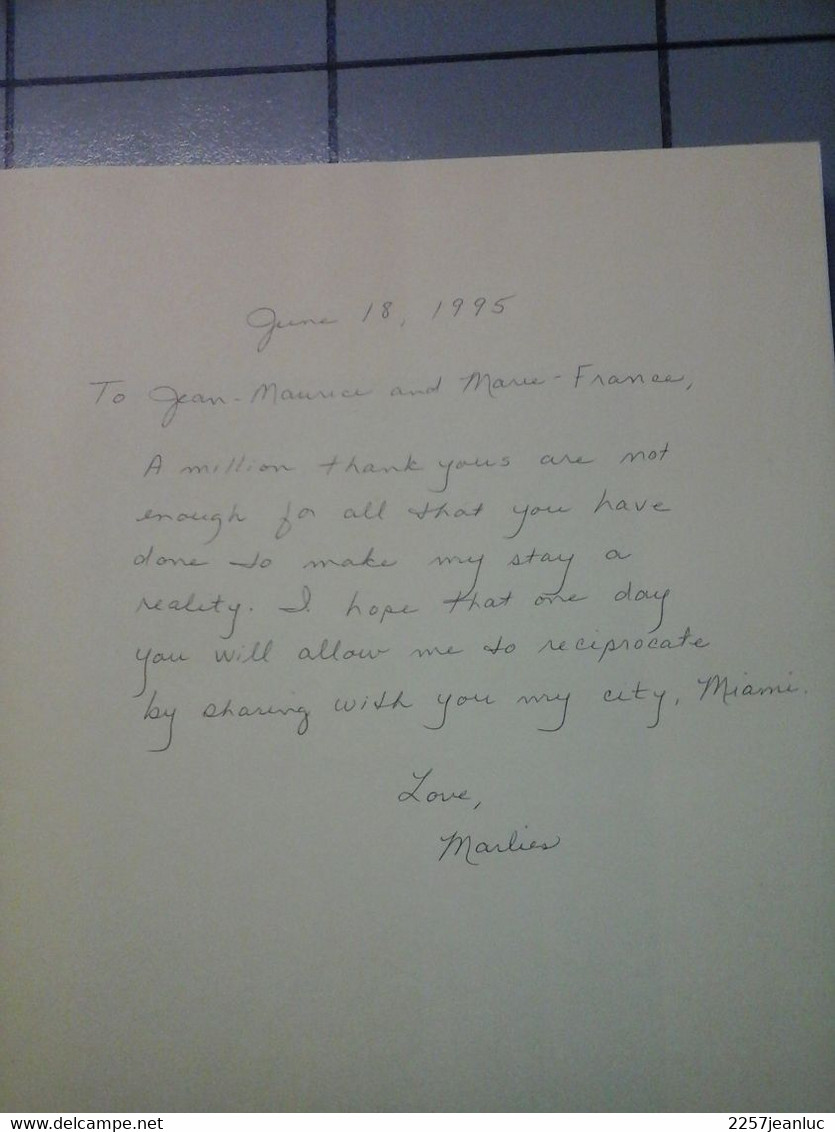 June 18, 1995
To Jean-Maurice and Marie-France,
A million thank yous are not
enough for all that you have
done to make my stay a
reality. I hope that one day
you will allow me to reciprocate
by sharing with you my city, Miami.
Love,
Marlies
www.delcampe.net
2257jeanluc